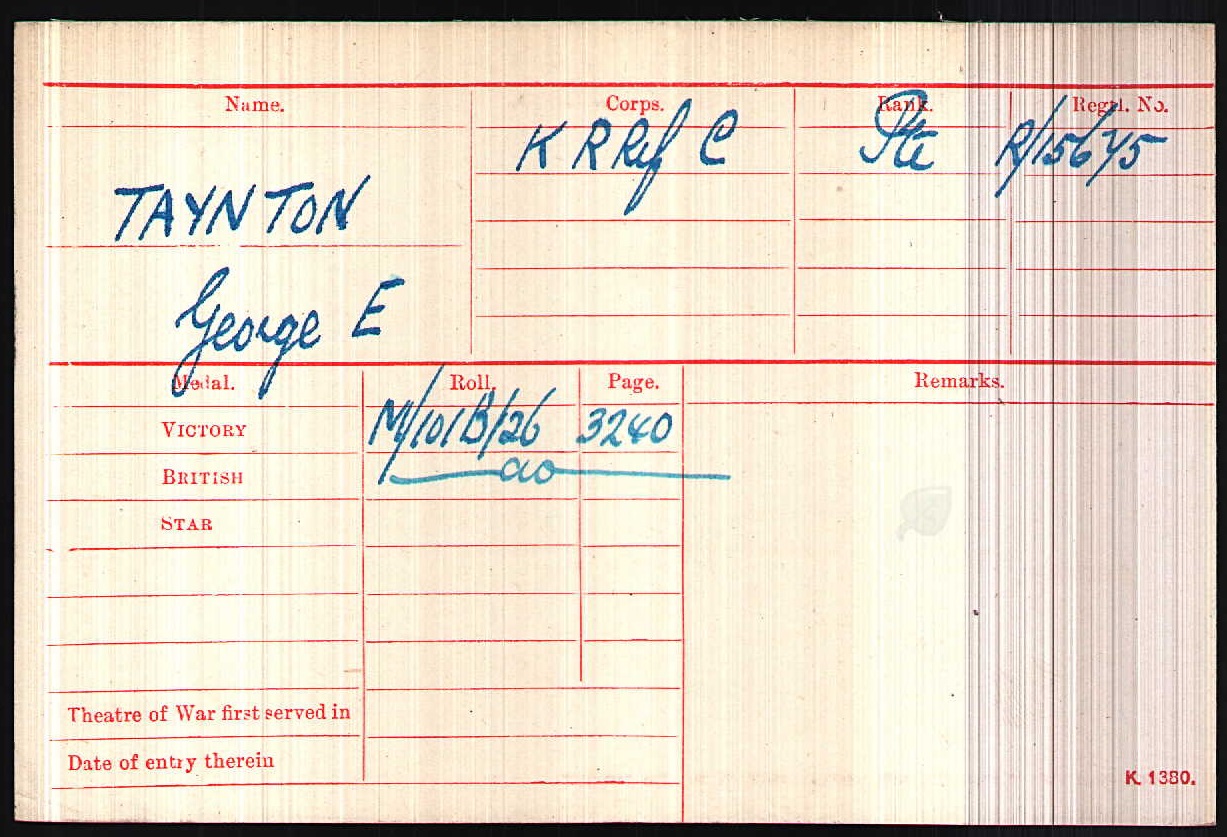 Name. Corps. Rank. Regtl. No.
K R Rif C Pte R/15675
TAYNTON
George E
Medal. Roll. Page. Remarks.
VICTORY M/101B/26 3240
BRITISH do
STAR
Theatre of War first served in
Date of entry therein
K. 1380.